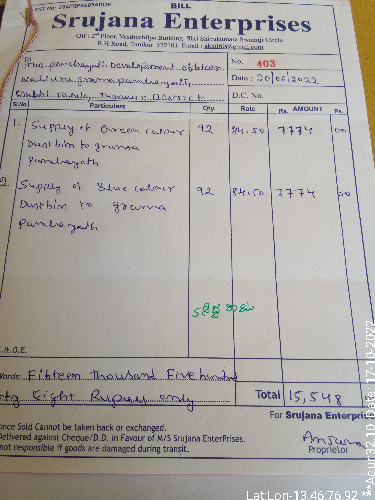 BILL
Srujana Enterprises
Off : 2nd Floor, Mathashilpa Building, Shri Shivakumara Swamiji Circle
B H Road, Tumkur 572101 Email :
To
The panchayathi Development officer
No. 403
Date : 20/06/2022
D.C. No.
Sl.No. Particulars Qty. Rate Rs. AMOUNT Ps.
1. Supply of Green colour 92 84.50 7774 00
Dustbin to grama
Panchayath
2. Supply of Blue colour 92 84.50 7774 00
Dustbin to grama
Panchayath
E.&.O.E.
Words: Fifteen Thousand Five hundred
Eight Rupees only
Total 15,548
For Srujana Enterpris
once Sold Cannot be taken back or exchanged.
Delivered against Cheque/D.D. in Favour of M/S Srujana Enterprises.
not responsible if goods are damaged during transit.
Proprietor
LatLon-13.46,76.92 ***Acur 32.10 Date 17-10-2022